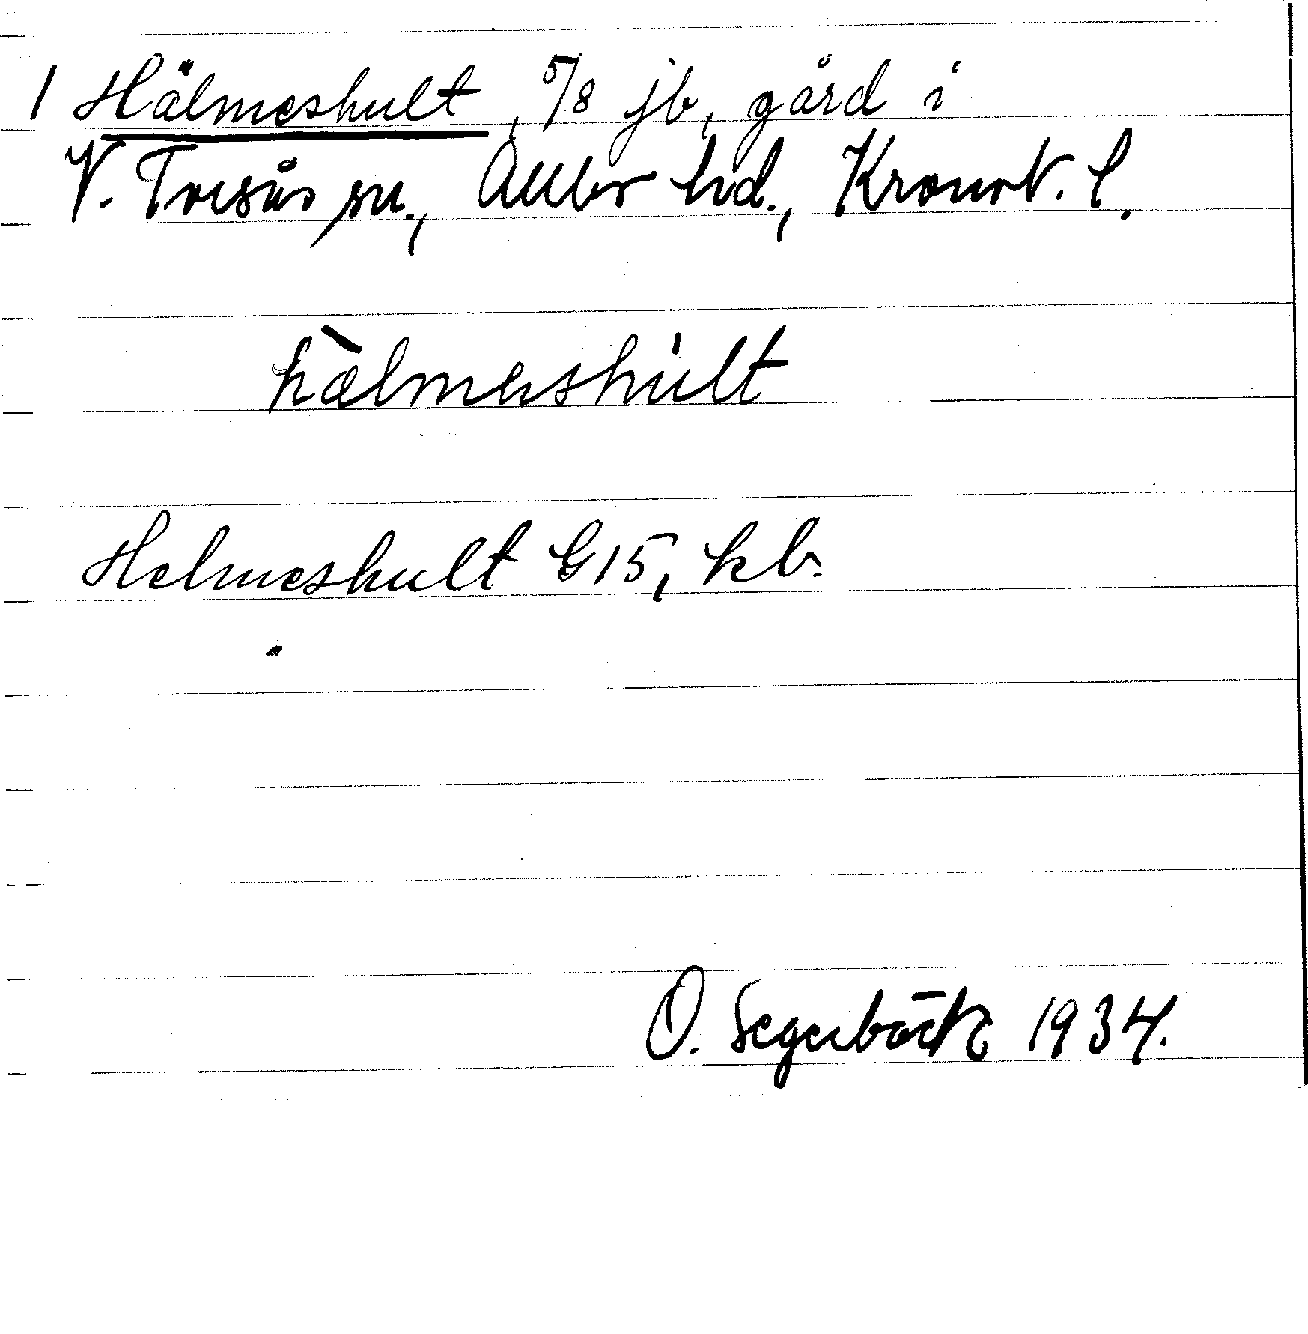 1 Hälmeshult, 5/8 jb, gård i
V. Torsås sn., Allbo hd., Kronob. l.
hàlmeshúlt
Helmeshult G15, kb.
O. Segerbäck 1934.